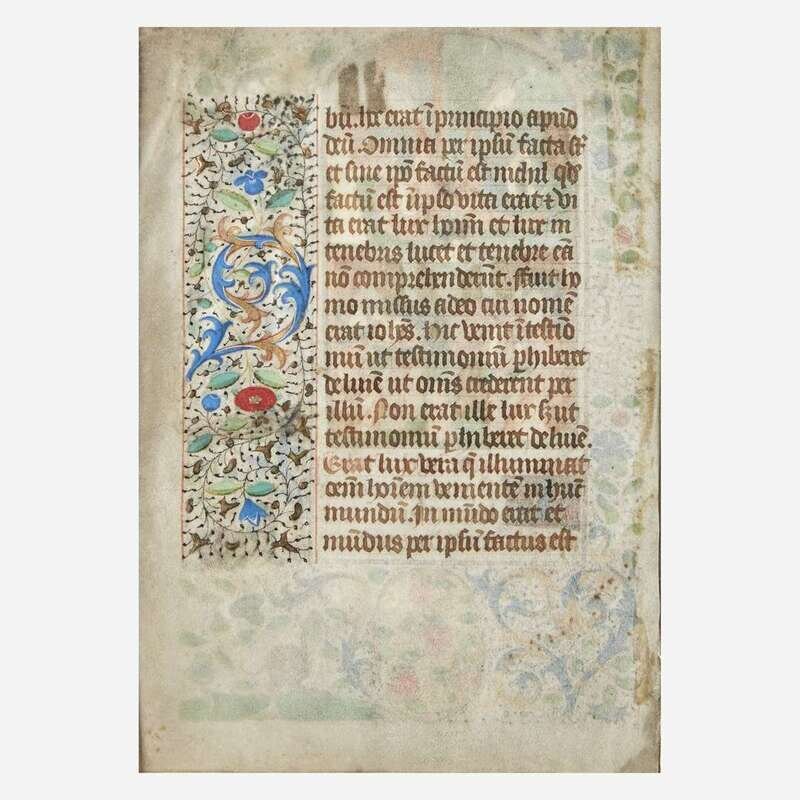 bū. hoc erat ī principio apud
deū. Omnia per ipsū facta st
et sine ipō factū est nichil qd
factū est ī ipso vita erat & vi
ta erat lux hoīm et lux in
tenebris lucet et tenebre eā
nō comprehenderūt. ffuit ho
mo missus a deo cui nomē
erat iohes. Hic venit ī testio
niūm ut testimoniūm phiberet
de luīe ut oms crederent per
illū. Non erat ille lux sz ut
testimoniū phiberet de luīe.
Erat lux vera q illuminat
oem hoīem venientē in hunc
mundū. In mūdo erat et
mūdus per ipsū factus est